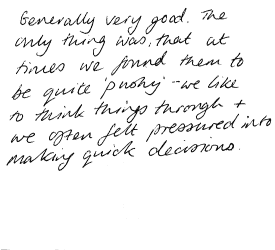 Generally very good. The
only thing was, that at
times we found them to
be quite 'pushy' - we like
to think things through +
we often felt pressured into
making quick decisions.